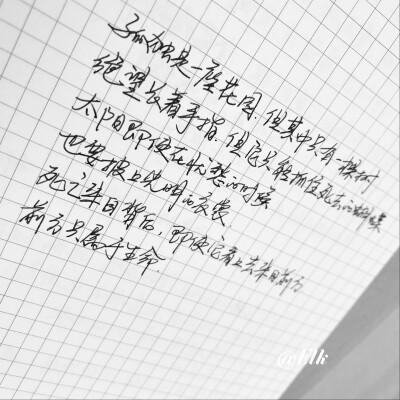 孤独是一座花园,但其中只有一棵树
绝望长着手指,但它只能抓住死去的蝴蝶
太阳即使在忧愁的时候
也要披上光明的衣裳
死亡来自背后,即使它看上去来自前方
前方只属于生命.
@blk